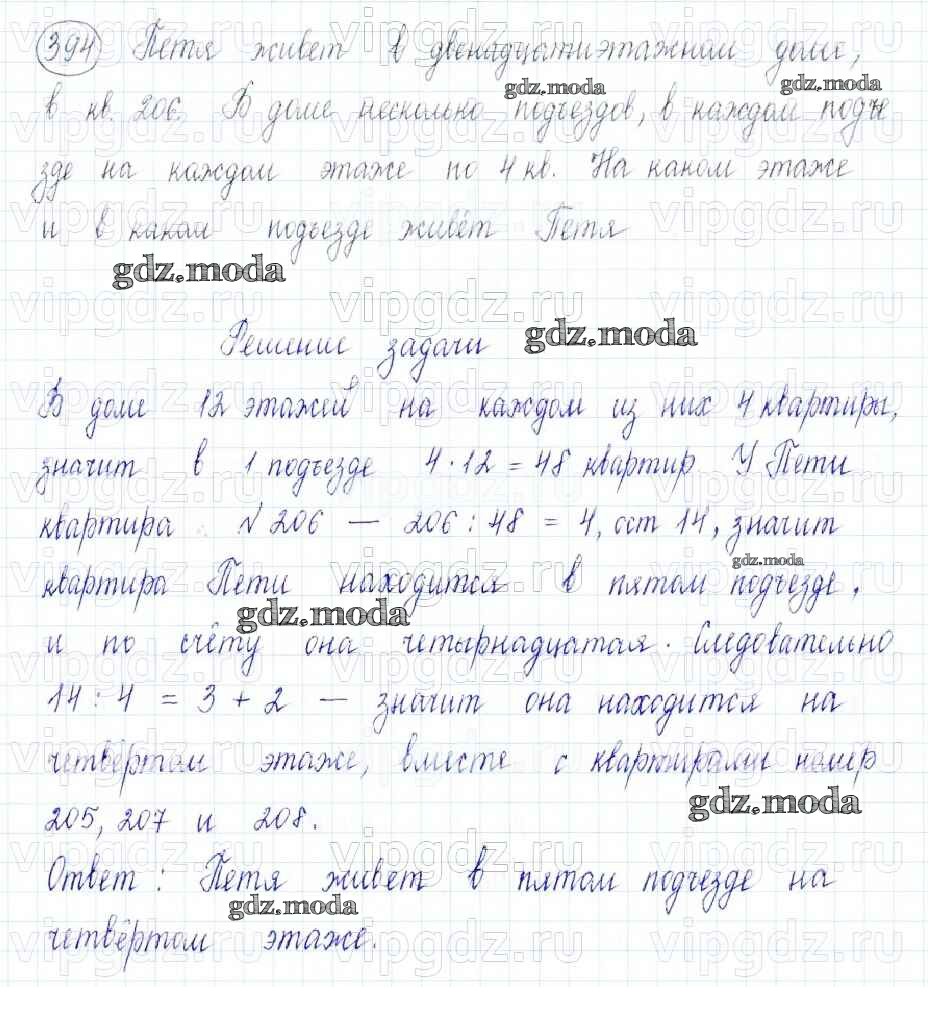 394 Петя живет в двенадцатиэтажном доме,
в кв. 206. В доме несколько подъездов, в каждом подъе
зде на каждом этаже по 4 кв. На каком этаже
и в каком подъезде живёт Петя
Решение задачи
В доме 12 этажей на каждом из них 4 квартиры,
значит в 1 подъезде 4 · 12 = 48 квартир У Пети
квартира №206 — 206 : 48 = 4, ост 14, значит
квартира Пети находится в пятом подъезде,
и по счёту она четырнадцатая. Следовательно
14 : 4 = 3 + 2 — значит она находится на
четвёртом этаже, вместе с квартирами номер
205, 207 и 208.
Ответ: Петя живет в пятом подъезде на
четвёртом этаже.
gdz.moda
vipgdz.ru